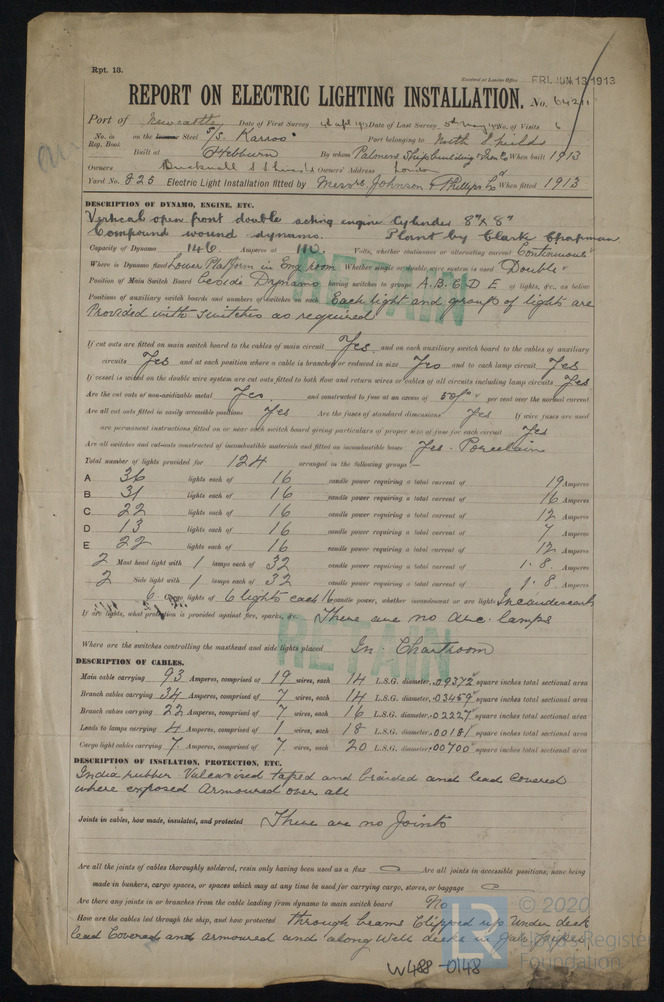 Rpt. 13.
Received at London Office FRI. JUN. 13 1913
REPORT ON ELECTRIC LIGHTING INSTALLATION. No. 64211
Port of Newcastle Date of First Survey 4th Apl 1913 Date of Last Survey No. of Visits 6
No. in Reg. Book on the Steel S/S. Karroo Port belonging to North Shields
Built at Hebburn By whom Palmers Shipbuilding & Iron Co When built 1913
Owners Bucknall S S Lines Ld Owners' Address London
Yard No. 825 Electric Light Installation fitted by Messrs Johnson & Phillips Ld When fitted 1913
DESCRIPTION OF DYNAMO, ENGINE, ETC.
Vertical open front double acting engine Cylinder 8" x 8"
Compound wound dynamo. Plant by Clark Chapman
Capacity of Dynamo 146 Amperes at 110 Volts, whether continuous or alternating current Continuous
Where is Dynamo fixed Lower Platform in Eng room Whether single or double wire system is used Double
Position of Main Switch Board beside Dynamo having switches to groups A. B. C D E of lights, &c., as below
Positions of auxiliary switch boards and numbers of switches on each Each light and groups of lights are
Provided with switches as required
If cut outs are fitted on main switch board to the cables of main circuit Yes and on each auxiliary switch board to the cables of auxiliary
circuits Yes and at each position where a cable is branched or reduced in size Yes and to each lamp circuit Yes
If vessel is wired on the double wire system are cut outs fitted to both flow and return wires or cables of all circuits including lamp circuits Yes
Are the cut outs of non-oxidizable metal Yes and constructed to fuse at an excess of 50% per cent over the normal current
Are all cut outs fitted in easily accessible positions Yes Are the fuses of standard dimensions Yes If wire fuses are used
are permanent instructions fitted on or near each switch board giving particulars of proper size of fuse for each circuit Yes
Are all switches and cut-outs constructed of incombustible materials and fitted on incombustible bases Yes. Porcelain
Total number of lights provided for 124 arranged in the following groups:—
A 36 lights each of 16 candle power requiring a total current of 19 Amperes
B 31 lights each of 16 candle power requiring a total current of 16 Amperes
C 22 lights each of 16 candle power requiring a total current of 12 Amperes
D 13 lights each of 16 candle power requiring a total current of 7 Amperes
E 22 lights each of 16 candle power requiring a total current of 12 Amperes
2 Mast head light with 1 lamps each of 32 candle power requiring a total current of 1.8 Amperes
2 Side light with 1 lamps each of 32 candle power requiring a total current of 1.8 Amperes
6 Cargo lights of 6 lights each 16 candle power, whether incandescent or arc lights Incandescent
If arc lights, what protection is provided against fire, sparks, &c. There are no Arc lamps
Where are the switches controlling the masthead and side lights placed In Chartroom
DESCRIPTION OF CABLES.
Main cable carrying 93 Amperes, comprised of 19 wires, each 14 L.S.G. diameter, .09372 square inches total sectional area
Branch cables carrying 34 Amperes, comprised of 7 wires, each 14 L.S.G. diameter, .03459 square inches total sectional area
Branch cables carrying 22 Amperes, comprised of 7 wires, each 16 L.S.G. diameter, .02227 square inches total sectional area
Leads to lamps carrying 4 Amperes, comprised of 1 wires, each 18 L.S.G. diameter, .00181 square inches total sectional area
Cargo light cables carrying 7 Amperes, comprised of 7 wires, each 20 L.S.G. diameter, .00700 square inches total sectional area
DESCRIPTION OF INSULATION, PROTECTION, ETC.
India rubber Vulcanised taped and braided and lead Covered
where exposed Armoured over all
Joints in cables, how made, insulated, and protected There are no Joints
Are all the joints of cables thoroughly soldered, resin only having been used as a flux Are all joints in accessible positions, none being
made in bunkers, cargo spaces, or spaces which may at any time be used for carrying cargo, stores, or baggage
Are there any joints in or branches from the cable leading from dynamo to main switch board No
How are the cables led through the ship, and how protected through beams Clipped up Under deck
lead Covered and armoured and along Well decks in Galv. pipes
RETAIN
RETAIN
© 2020
Lloyd's Register
Foundation
W488-0148